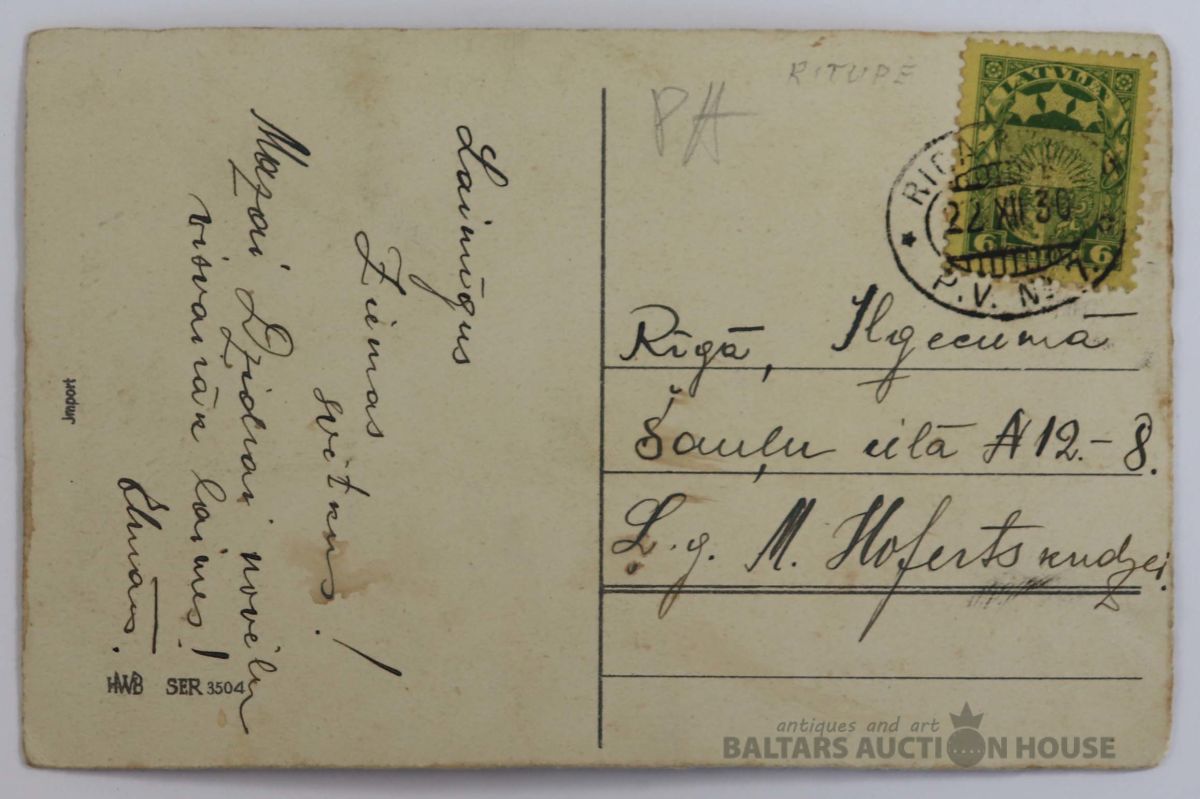 Laimīgus
Ziemas
svētkus!
Mazai Dzidrai novēlu
visvairāk laimes!
Import
HWB SER 3504
RITUPE
PA
LATVIJA
6 6
RIGA
22 XII 30
P.V. No 7.
Rīgā, Ilgecumā
Šauļu ielā N 12.-8.
L. g. M. Hoferts kundzei.
antiques and art
BALTARS AUCTION HOUSE